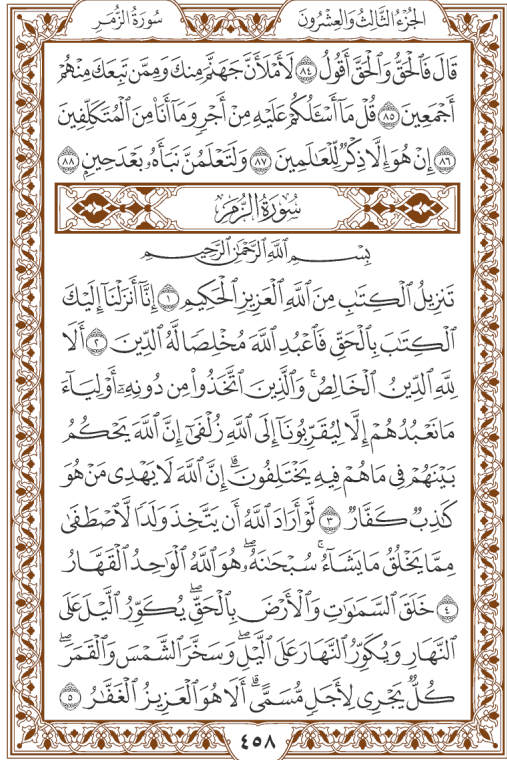 سُورَةُ الزُّمَرِ الجُزْءُ الثَّالِثُ وَالعِشْرُونَ
قَالَ فَٱلْحَقُّ وَٱلْحَقَّ أَقُولُ ٨٤ لَأَمْلَأَنَّ جَهَنَّمَ مِنكَ وَمِمَّن تَبِعَكَ مِنْهُمْ
أَجْمَعِينَ ٨٥ قُلْ مَآ أَسْـَٔلُكُمْ عَلَيْهِ مِنْ أَجْرٍ وَمَآ أَنَا۠ مِنَ ٱلْمُتَكَلِّفِينَ
٨٦ إِنْ هُوَ إِلَّا ذِكْرٌ لِّلْعَـٰلَمِينَ ٨٧ وَلَتَعْلَمُنَّ نَبَأَهُۥ بَعْدَ حِينٍۭ ٨٨
سُورَةُ الزُّمَرِ
بِسْمِ ٱللَّهِ ٱلرَّحْمَـٰنِ ٱلرَّحِيمِ
تَنزِيلُ ٱلْكِتَـٰبِ مِنَ ٱللَّهِ ٱلْعَزِيزِ ٱلْحَكِيمِ ١ إِنَّآ أَنزَلْنَآ إِلَيْكَ
ٱلْكِتَـٰبَ بِٱلْحَقِّ فَٱعْبُدِ ٱللَّهَ مُخْلِصًا لَّهُ ٱلدِّينَ ٢ أَلَا
لِلَّهِ ٱلدِّينُ ٱلْخَالِصُ ۚ وَٱلَّذِينَ ٱتَّخَذُوا۟ مِن دُونِهِۦٓ أَوْلِيَآءَ
مَا نَعْبُدُهُمْ إِلَّا لِيُقَرِّبُونَآ إِلَى ٱللَّهِ زُلْفَىٰٓ إِنَّ ٱللَّهَ يَحْكُمُ
بَيْنَهُمْ فِى مَا هُمْ فِيهِ يَخْتَلِفُونَ ۗ إِنَّ ٱللَّهَ لَا يَهْدِى مَنْ هُوَ
كَـٰذِبٌ كَفَّارٌ ٣ لَّوْ أَرَادَ ٱللَّهُ أَن يَتَّخِذَ وَلَدًا لَّٱصْطَفَىٰ
مِمَّا يَخْلُقُ مَا يَشَآءُ ۚ سُبْحَـٰنَهُۥ ۖ هُوَ ٱللَّهُ ٱلْوَٰحِدُ ٱلْقَهَّارُ
٤ خَلَقَ ٱلسَّمَـٰوَٰتِ وَٱلْأَرْضَ بِٱلْحَقِّ ۖ يُكَوِّرُ ٱلَّيْلَ عَلَى
ٱلنَّهَارِ وَيُكَوِّرُ ٱلنَّهَارَ عَلَى ٱلَّيْلِ ۖ وَسَخَّرَ ٱلشَّمْسَ وَٱلْقَمَرَ ۖ
كُلٌّ يَجْرِى لِأَجَلٍ مُّسَمًّى ۗ أَلَا هُوَ ٱلْعَزِيزُ ٱلْغَفَّـٰرُ ٥
٤٥٨